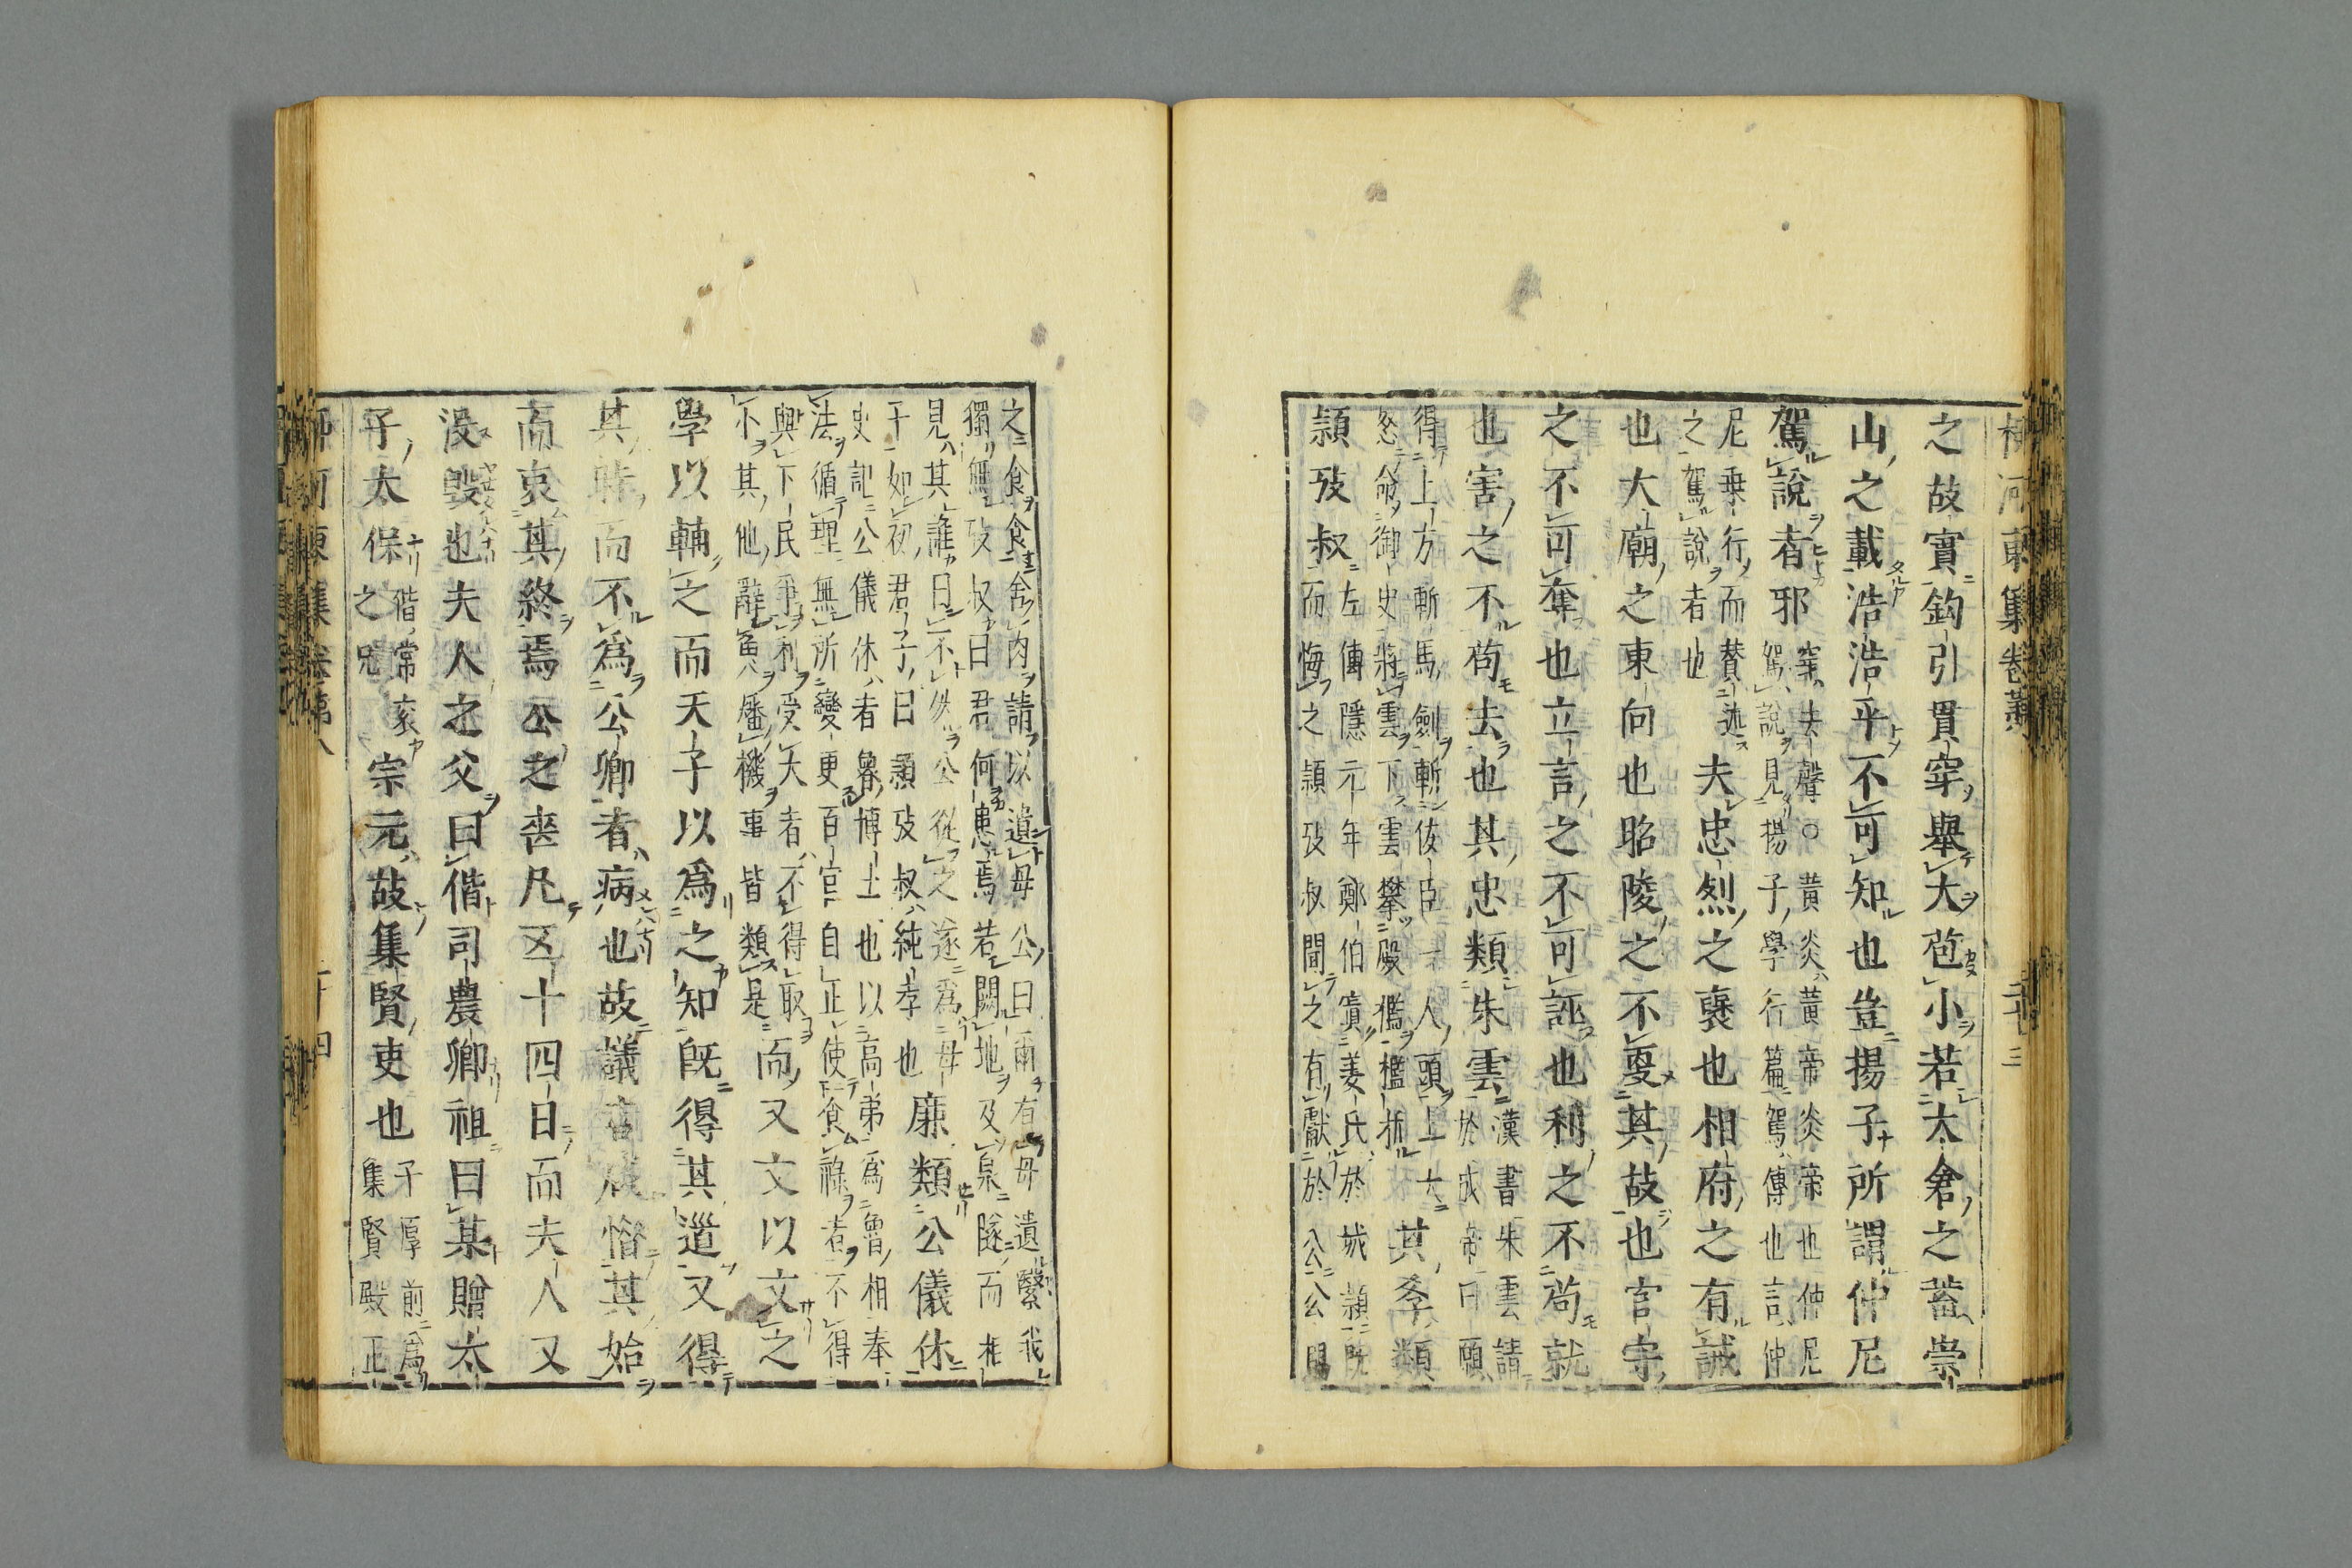 柳河東集卷第
之故實鈎引貫穿舉大苞小若太倉之蓄崇
山之載浩浩乎不可知也豈揚子所謂仲尼
駕說者邪
穿去聲○黃炎黃帝炎帝也仲尼
駕說見揚子學行篇駕傳也言仲
尼乗行而賛述
之駕說者也
夫忠烈之襃也相府之有誠
也大廟之東向也昭陵之不更其故也言守
之不可奪也立言之不可誣也利之不苟就
也害之不苟去也其忠類朱雲
漢書朱雲請
於成帝曰願
得上方斬馬劍斬佞臣一人頭上大
怒命御史將雲下雲攀殿檻檻折
其孝類
頴攷叔
左傳隱元年鄭伯寘姜氏於城潁既
而悔之頴攷叔聞之有獻於公公賜
之食食舍肉請以遺母公曰爾有母遺繄我
獨無攷叔曰君何患焉若闕地及泉隧而相
見其誰曰不然公從之遂爲母
子如初君子曰頴攷叔純孝也
廉類公儀休
史記公儀休者魯博士也以高弟爲魯相奉
法循理無所變更百官自正使食祿者不得
與下民爭利受大者不得取
小其他辭魚燔機事皆類是
而又文以文之
學以輔之而天子以爲之知既得其道又得
其時而不爲公卿者病也故議者咸惜其始
而哀其終焉公之喪凡五十四日而夫人又
没毀也夫人之父曰偕司農卿祖曰某贈太
子太保
偕常袞
之兄
宗元故集賢吏也
子厚前爲
集賢殿正
柳河東集卷第八